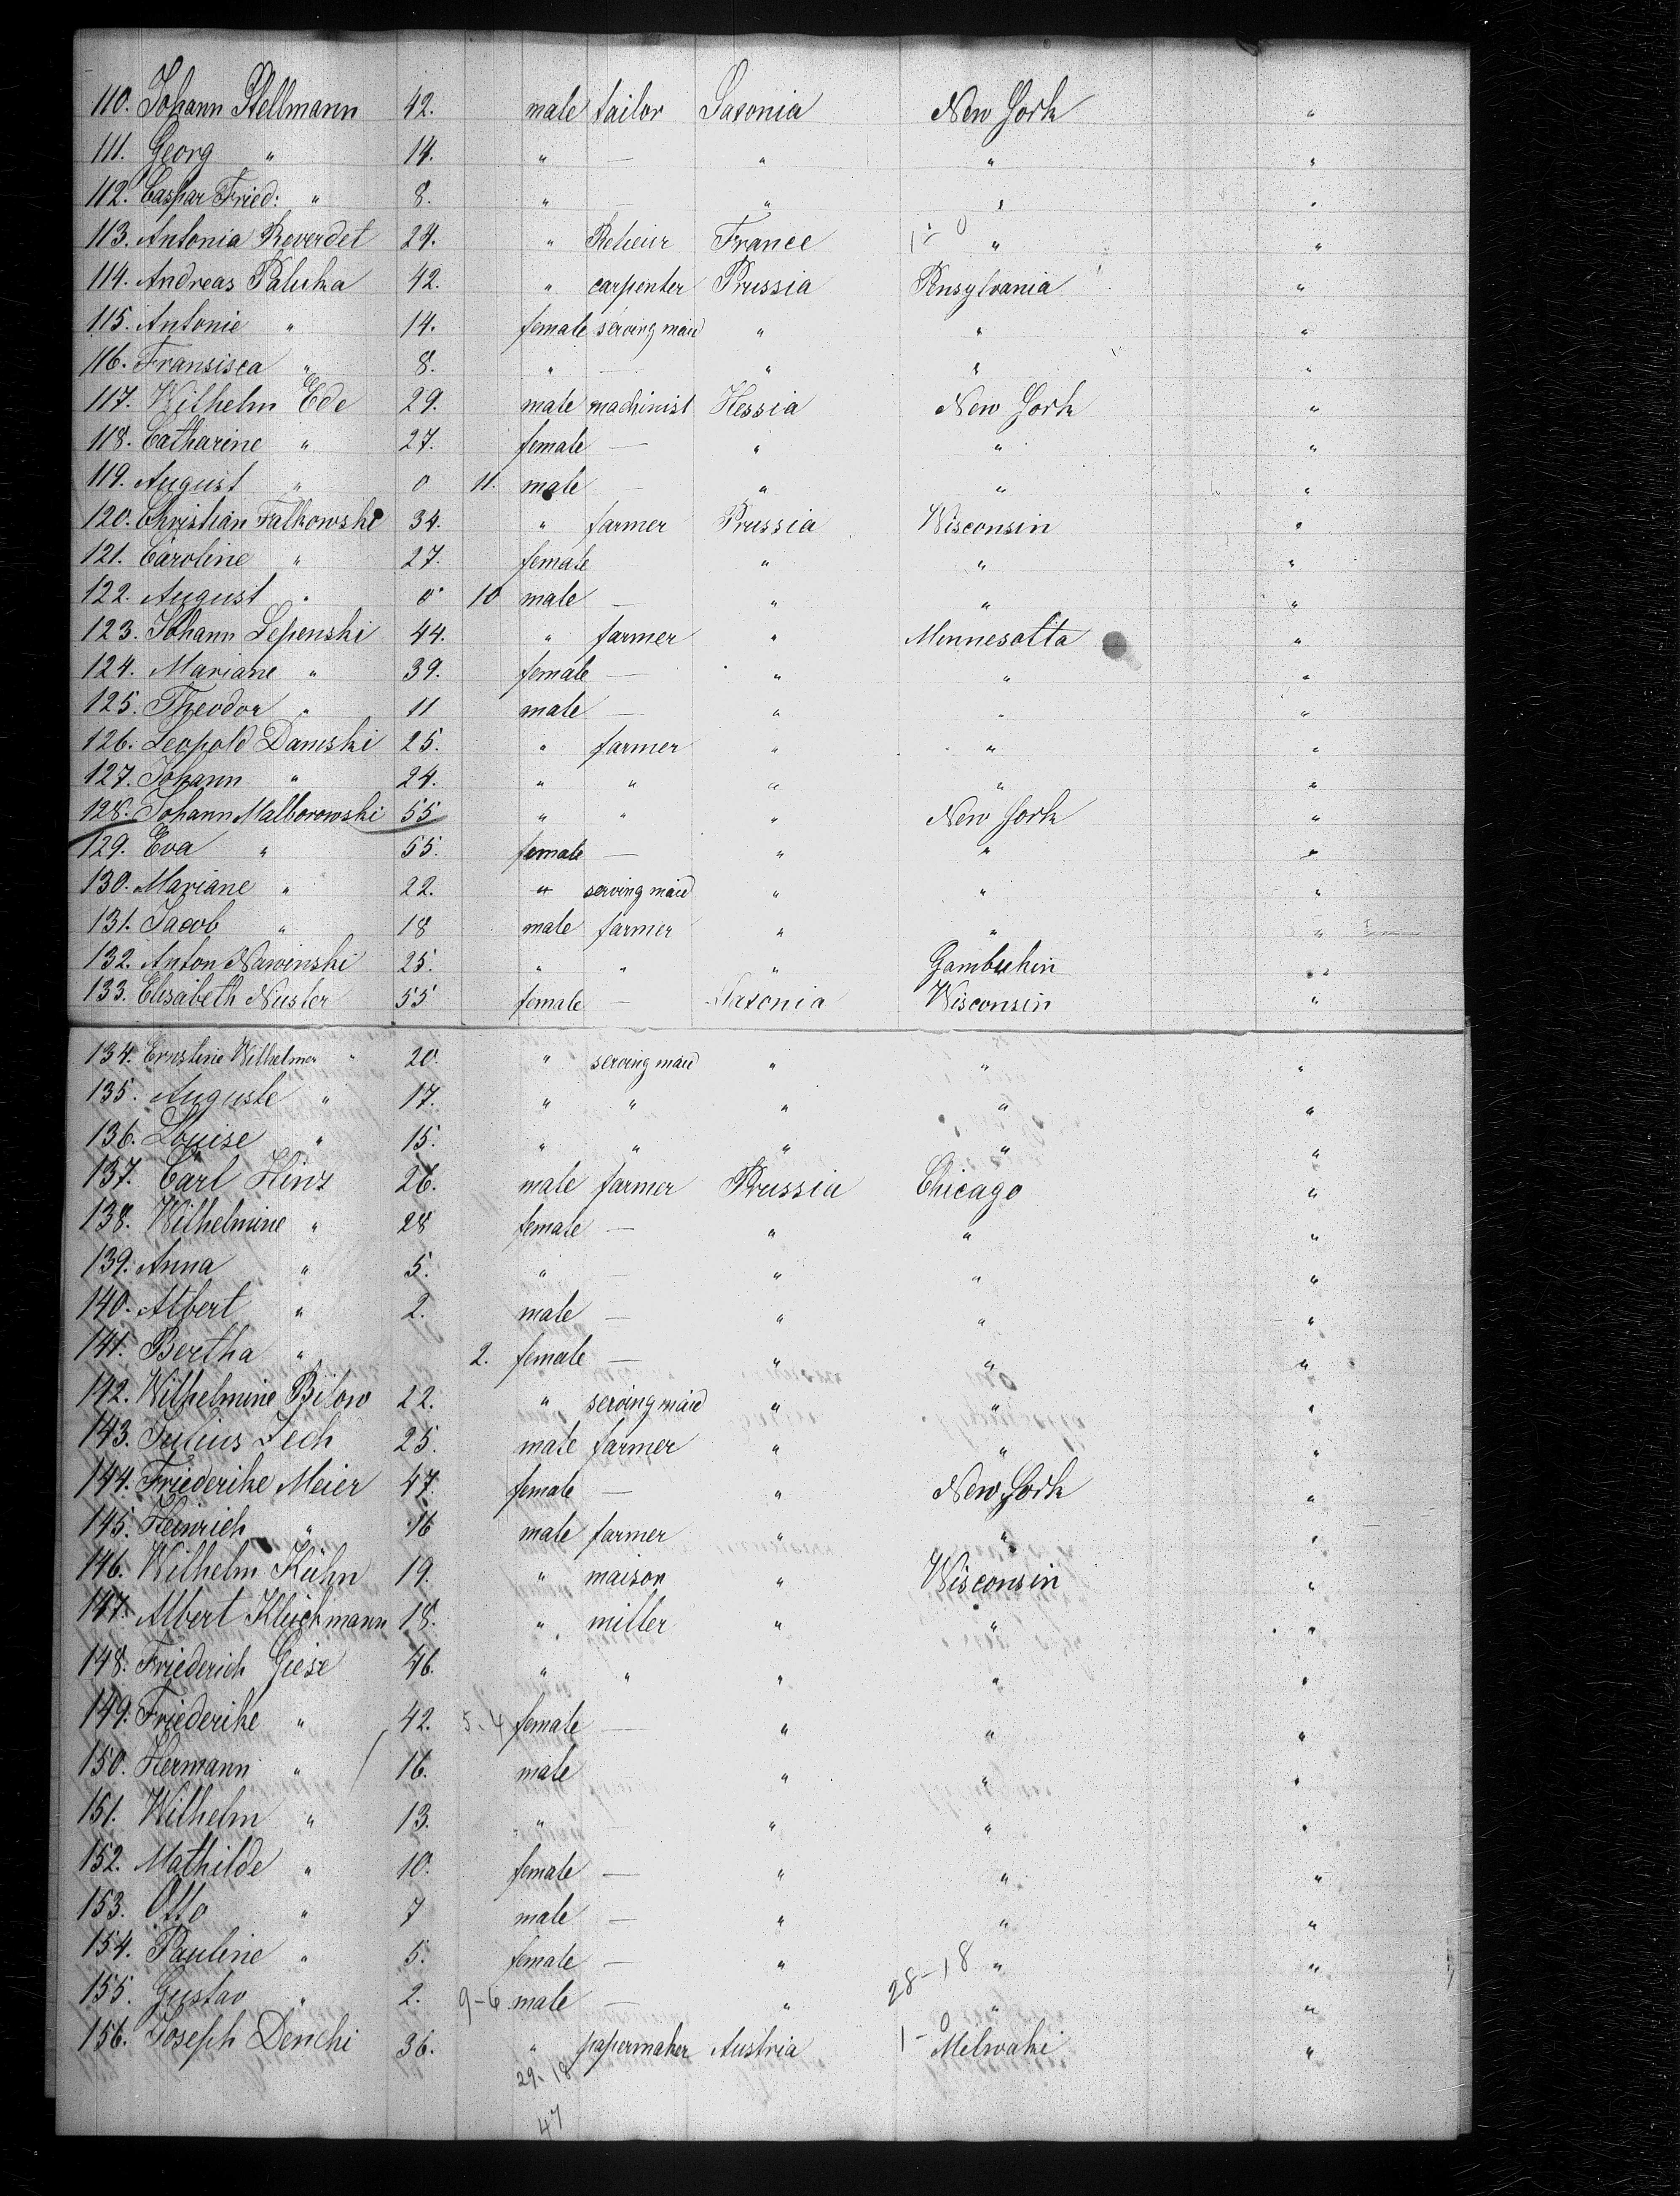 110. Johann Stellmann 42. male tailor Saxonia New York "
111. Georg " 14. " — " " "
112. Caspar Fried: " 8. " — " " "
113. Antonia Reverdet 24. " Relieur France 1-0 " "
114. Andreas Paluka 42. " carpenter Prussia Pensylvania "
115. Antonie " 14. female serving maid " " "
116. Fransisca " 8. " — " " "
117. Wilhelm Ede 29. male machinist Hessia New York "
118. Catharine " 27. female — " " "
119. August " 0 11. male — " " "
120. Christian Falkowski 34. " farmer Prussia Wisconsin "
121. Caroline " 27. female " " "
122. August " 0 10 male — " " "
123. Johann Lepenski 44. " farmer " Minnesotta "
124. Mariane " 39. female — " " "
125. Theodor " 11 male — " " "
126. Leopold Damski 25. " farmer " " "
127. Johann " 24. " " " " "
128. Johann Malborowski 55 " " " New York "
129. Eva " 55. female — " " "
130. Mariane " 22. " serving maid " " "
131. Jacob " 18 male farmer " " "
132. Anton Nawinski 25. " " " Gambuhin "
133. Elisabeth Nuster 55 female — Saxonia Wisconsin "
134. Ernstine Wilhelmer " 20. " serving maid " " "
135. Auguste " 17. " " " " "
136. Louise " 15. " " " " "
137. Carl Hinz 26. male farmer Prussia Chicago "
138. Wilhelmine " 28 female — " " "
139. Anna " 5. " — " " "
140. Albert " 2. male — " " "
141. Bertha " 2. female — " " "
142. Wilhelmine Bilow 22. " serving maid " " "
143. Julius Zech 25. male farmer " " "
144. Friederike Meier 47. female — " New York "
145. Heinrich " 16 male farmer " " "
146. Wilhelm Kühn 19. " maison " Wisconsin "
147. Albert Kluckmann 18. " miller " " "
148. Friederich Giese 46. " " " " "
149. Friederike " 42. 5-4 female — " " "
150. Hermann " 16. male " " "
151. Wilhelm " 13. " " " "
152. Mathilde " 10. female — " " "
153. Otto " 7 male — " " "
154. Pauline " 5. female — " " "
28-18
155. Gustav " 2. 9-6 male — " " "
156. Joseph Denchi 36. " papermaker Austria 1-0 Melwaki "
29-18
47